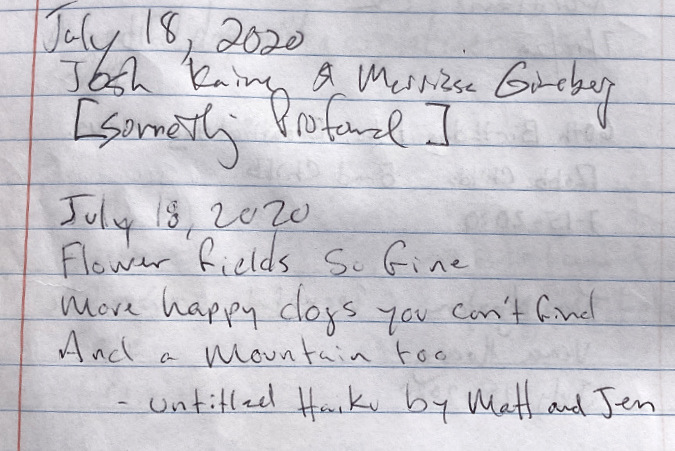 July 18, 2020
Josh & Merrissa
[Something Profound]
July 18, 2020
Flower fields so fine
More happy dogs you can't find
And a mountain too
- untitled Haiku by Matt and Jen